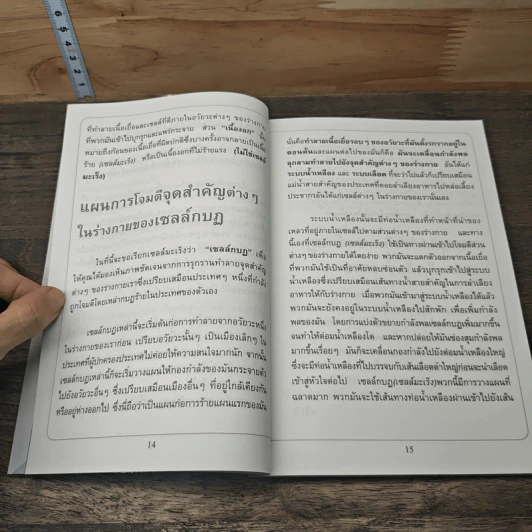 6 4 3 2 1
ที่ทำลายเนื้อเยื่อและเซลล์ที่ดีภายในอวัยวะต่างๆ ของร่างกาย
ที่พวกมันเข้าไปบุกรุกและแพร่กระจาย ส่วน "เนื้องอก"
หมายถึงก้อนของเนื้อเยื่อที่ผิดปกติซึ่งบางครั้งอาจกลายเป็นเนื้อ
ร้าย (เซลล์มะเร็ง) หรือเป็นเนื้องอกที่ไม่ร้ายแรง (ไม่ใช่เซลล์
มะเร็ง)
แผนการโจมตีจุดสำคัญต่างๆ
ในร่างกายของเซลล์กบฏ
ในที่นี้จะขอเรียกเซลล์มะเร็งว่า "เซลล์กบฏ" เพื่อ
ให้คุณได้มองเห็นภาพชัดเจนจากการรุกรานทำลายจุดสำคัญ
ต่างๆ ของร่างกายเราซึ่งเปรียบเสมือนประเทศๆ หนึ่งที่กำลัง
ถูกโจมตีโดยเหล่ากบฏร้ายในประเทศของตัวเอง
เซลล์กบฏเหล่านี้จะเริ่มต้นก่อการทำลายจากอวัยวะหนึ่ง
ในร่างกายของเราก่อน เปรียบอวัยวะนั้นๆ เป็นเมืองเล็กๆ ใน
ประเทศที่ผู้ปกครองประเทศไม่ค่อยให้ความสนใจมากนัก จากนั้น
เซลล์กบฏเหล่านี้ก็จะเริ่มวางแผนให้กองกำลังของมันกระจายตัว
ไปยังอวัยวะอื่นๆ ซึ่งเปรียบเสมือนเมืองอื่นๆ ที่อยู่ใกล้เคียงกัน
หรืออยู่ห่างออกไป ซึ่งนี่ถือว่าเป็นแผนก่อการร้ายแผนแรกของมัน
14
นั่นคือทำลายเนื้อเยื่อรอบๆ ของอวัยวะที่มันตั้งรกรากอยู่ใน
ตอนต้นและแผนต่อไปของมันก็คือ มันจะเคลื่อนกำลังพล
ลุกลามทำลายไปยังจุดสำคัญต่างๆ ของร่างกาย อันได้แก่
ระบบน้ำเหลือง และ ระบบเลือด ที่จะว่าไปแล้วก็เปรียบเสมือน
แม่น้ำสายสำคัญของประเทศที่คอยลำเลียงอาหารไปหล่อเลี้ยง
ประชากรอันได้แก่เซลล์ต่างๆ ในร่างกายของเรานั่นเอง
ระบบน้ำเหลืองนั้นจะมีท่อน้ำเหลืองที่ทำหน้าที่นำของ
เหลวที่อยู่ภายในเซลล์ไปตามส่วนต่างๆ ของร่างกาย และทาง
นี้เองที่เซลล์กบฏ (เซลล์มะเร็ง) ใช้เป็นทางผ่านเข้าไปโจมตีส่วน
ต่างๆ ของร่างกายได้โดยง่าย พวกมันจะแตกตัวออกจากเนื้อเยื่อ
ที่พวกมันใช้เป็นที่อาศัยหลบซ่อนตัว แล้วบุกรุกเข้าไปสู่ระบบ
น้ำเหลืองซึ่งเปรียบเสมือนเส้นทางน้ำสายสำคัญในการลำเลียง
อาหารให้กับร่างกาย เมื่อพวกมันเข้ามาสู่ระบบน้ำเหลืองได้แล้ว
พวกมันจะยังคงอยู่ในระบบน้ำเหลืองไปสักพัก เพื่อเพิ่มกำลัง
พลของมัน โดยการแบ่งตัวขยายกำลังพลเซลล์กบฏเพิ่มมากขึ้น
จนทำให้ต่อมน้ำเหลืองโต และหากปล่อยให้มันซ่องสุมกำลังพล
มากขึ้นเรื่อยๆ มันก็จะเคลื่อนกองกำลังไปยังต่อมน้ำเหลืองใหญ่
ซึ่งจะมีท่อน้ำเหลืองที่ไปบรรจบกับเส้นเลือดดำใหญ่ก่อนจะนำเลือด
เข้าสู่หัวใจต่อไป เซลล์กบฏ(เซลล์มะเร็ง)พวกนี้มีการวางแผนที่
ฉลาดมาก พวกมันจะใช้เส้นทางท่อน้ำเหลืองผ่านเข้าไปยังเส้น
15